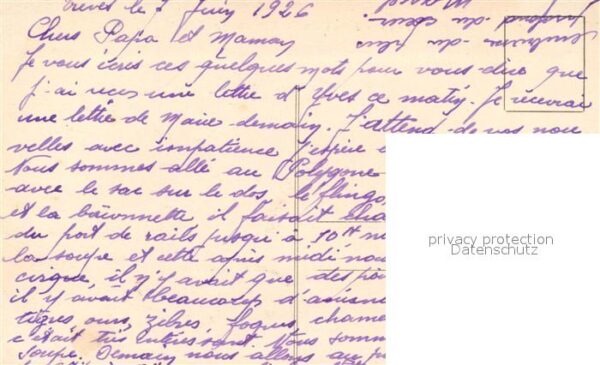 Trèves le 7 Juin 1926
Chers Papa et Maman
Je vous écris ces quelques mots pour vous dire que
j'ai reçu une lettre d'Yves ce matin. Je recevrai
une lettre de Marie demain. J'attend de vos nou
velles avec impatience J'espire
Nous sommes allé au Polygone
avec le sac sur le dos, le flingo,
et la baïonnette il faisait cha
du poit de rails jusqu'a 10H
la soupe et cette après midi nou
cirque, il n'y avait que des
il y avait beaucoup d'
tigres, ours, zibres, foques, chame
c'était très intéressant. Nous somm
soupe. Demain nous allons au
du cœur
privacy protection
Datenschutz